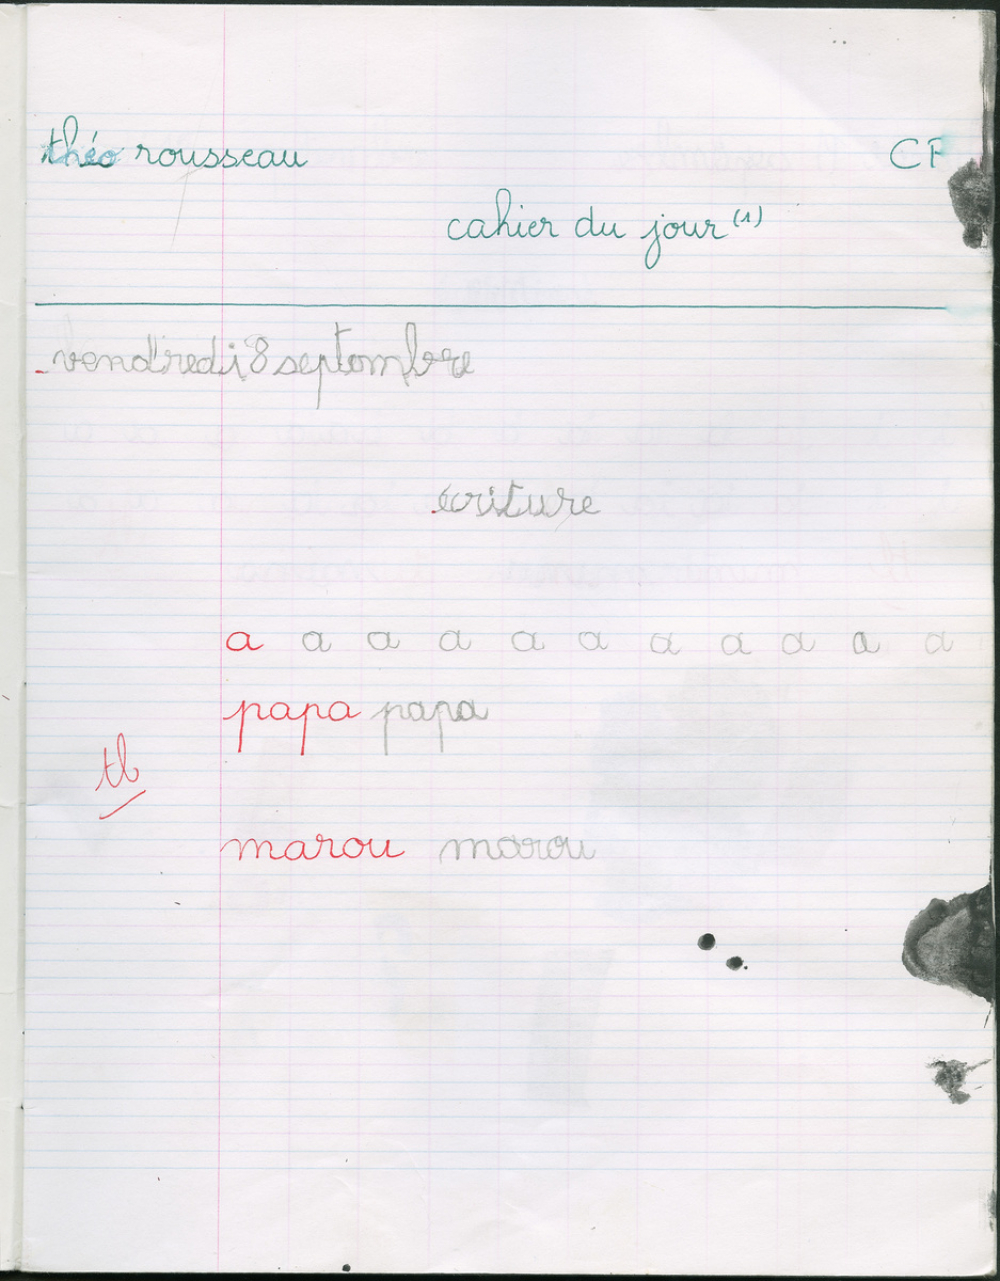 théo rousseau CP
cahier du jour (1)
vendredi 8 septembre
écriture
a a a a a a a a a a a
papa papa
tb
marou marou